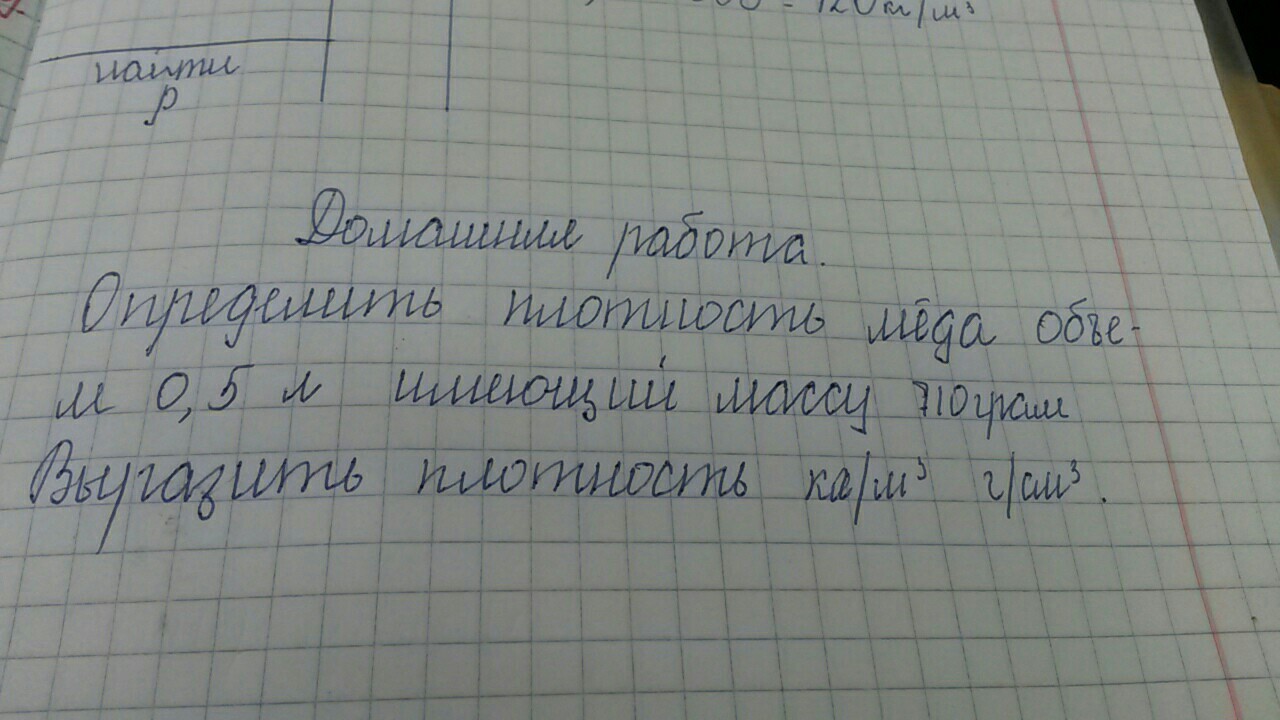 120кг/м³
найти
ρ
Домашняя работа.
Определить плотность мёда объе-
м 0,5 л имеющий массу 710грам
Выразить плотность кг/м³ г/см³.